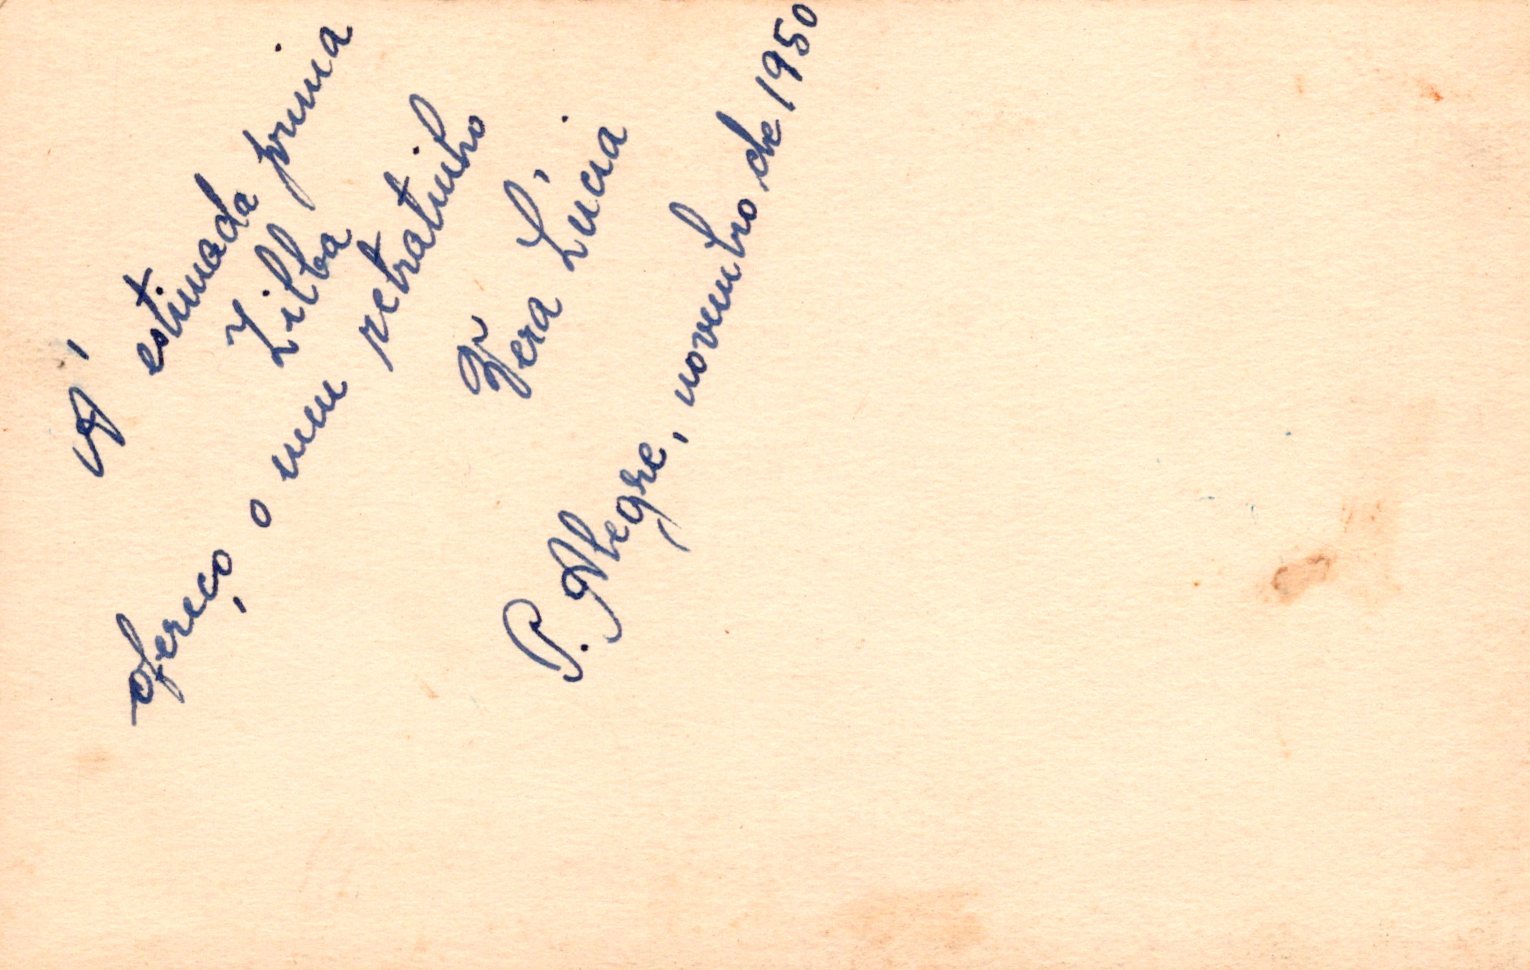 Á estimada prima
Zilba
ofereço o meu retratinho
Vera Lúcia
P. Alegre, novembro de 1950